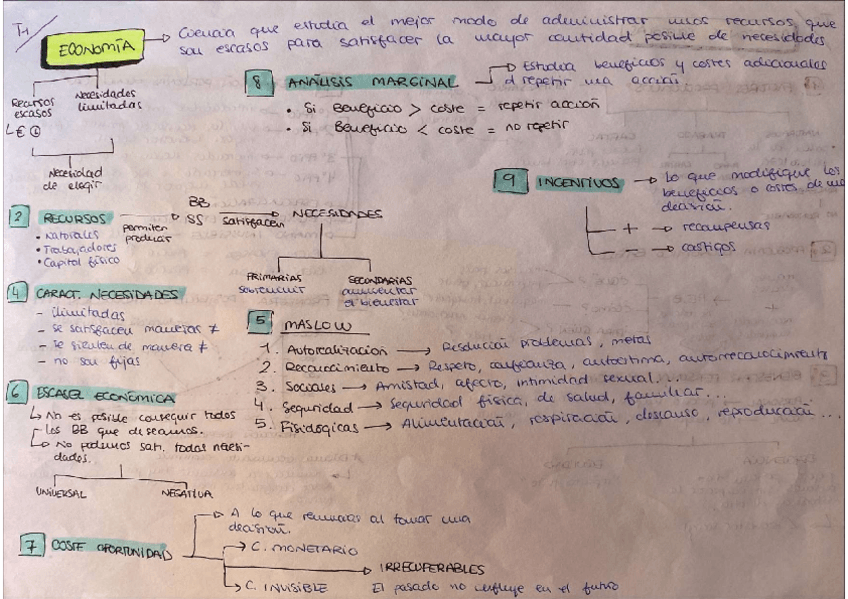 T1
ECONOMÍA → Ciencia que estudia el mejor modo de administrar unos recursos que
son escasos para satisfacer la mayor cantidad posible de necesidades
Recursos escasos
Necesidades ilimitadas
Necesidad
de elegir
8 ANÁLISIS MARGINAL → Estudia beneficios y costes adicionales
al repetir una acción.
• Si Beneficio > coste = repetir acción
• Si Beneficio < coste = no repetir
9 INCENTIVOS → Lo que modifique los
beneficios o costes de una
decisión.
+ → recompensas
- → castigos
2 RECURSOS → BB SS → NECESIDADES
permiten producir
satisfacen
• Naturales
• Trabajadores
• Capital físico
PRIMARIAS
sobrevivir
SECUNDARIAS
aumentar
el bienestar
4 CARACT. NECESIDADES
- ilimitadas
- se satisfacen maneras ≠
- se sienten de manera ≠
- no son fijas
5 MASLOW
1. Autorealización → Resolución problemas, metas
2. Reconocimiento → Respeto, confianza, autoestima, autorreconocimiento
3. Sociales → Amistad, afecto, intimidad sexual...
4. Seguridad → Seguridad física, de salud, familiar...
5. Fisiológicas → Alimentación, respiración, descanso, reproducción...
6 ESCASEZ ECONÓMICA
↳ No es posible conseguir todos
los BB que deseamos.
↳ No podemos sati. todas necesi-
dades.
UNIVERSAL
NEGATIVA
7 COSTE OPORTUNIDAD
→ A lo que renuncias al tomar una
decisión.
→ C. MONETARIO
→ IRRECUPERABLES
↳ C. INVISIBLE
El pasado no influye en el futuro